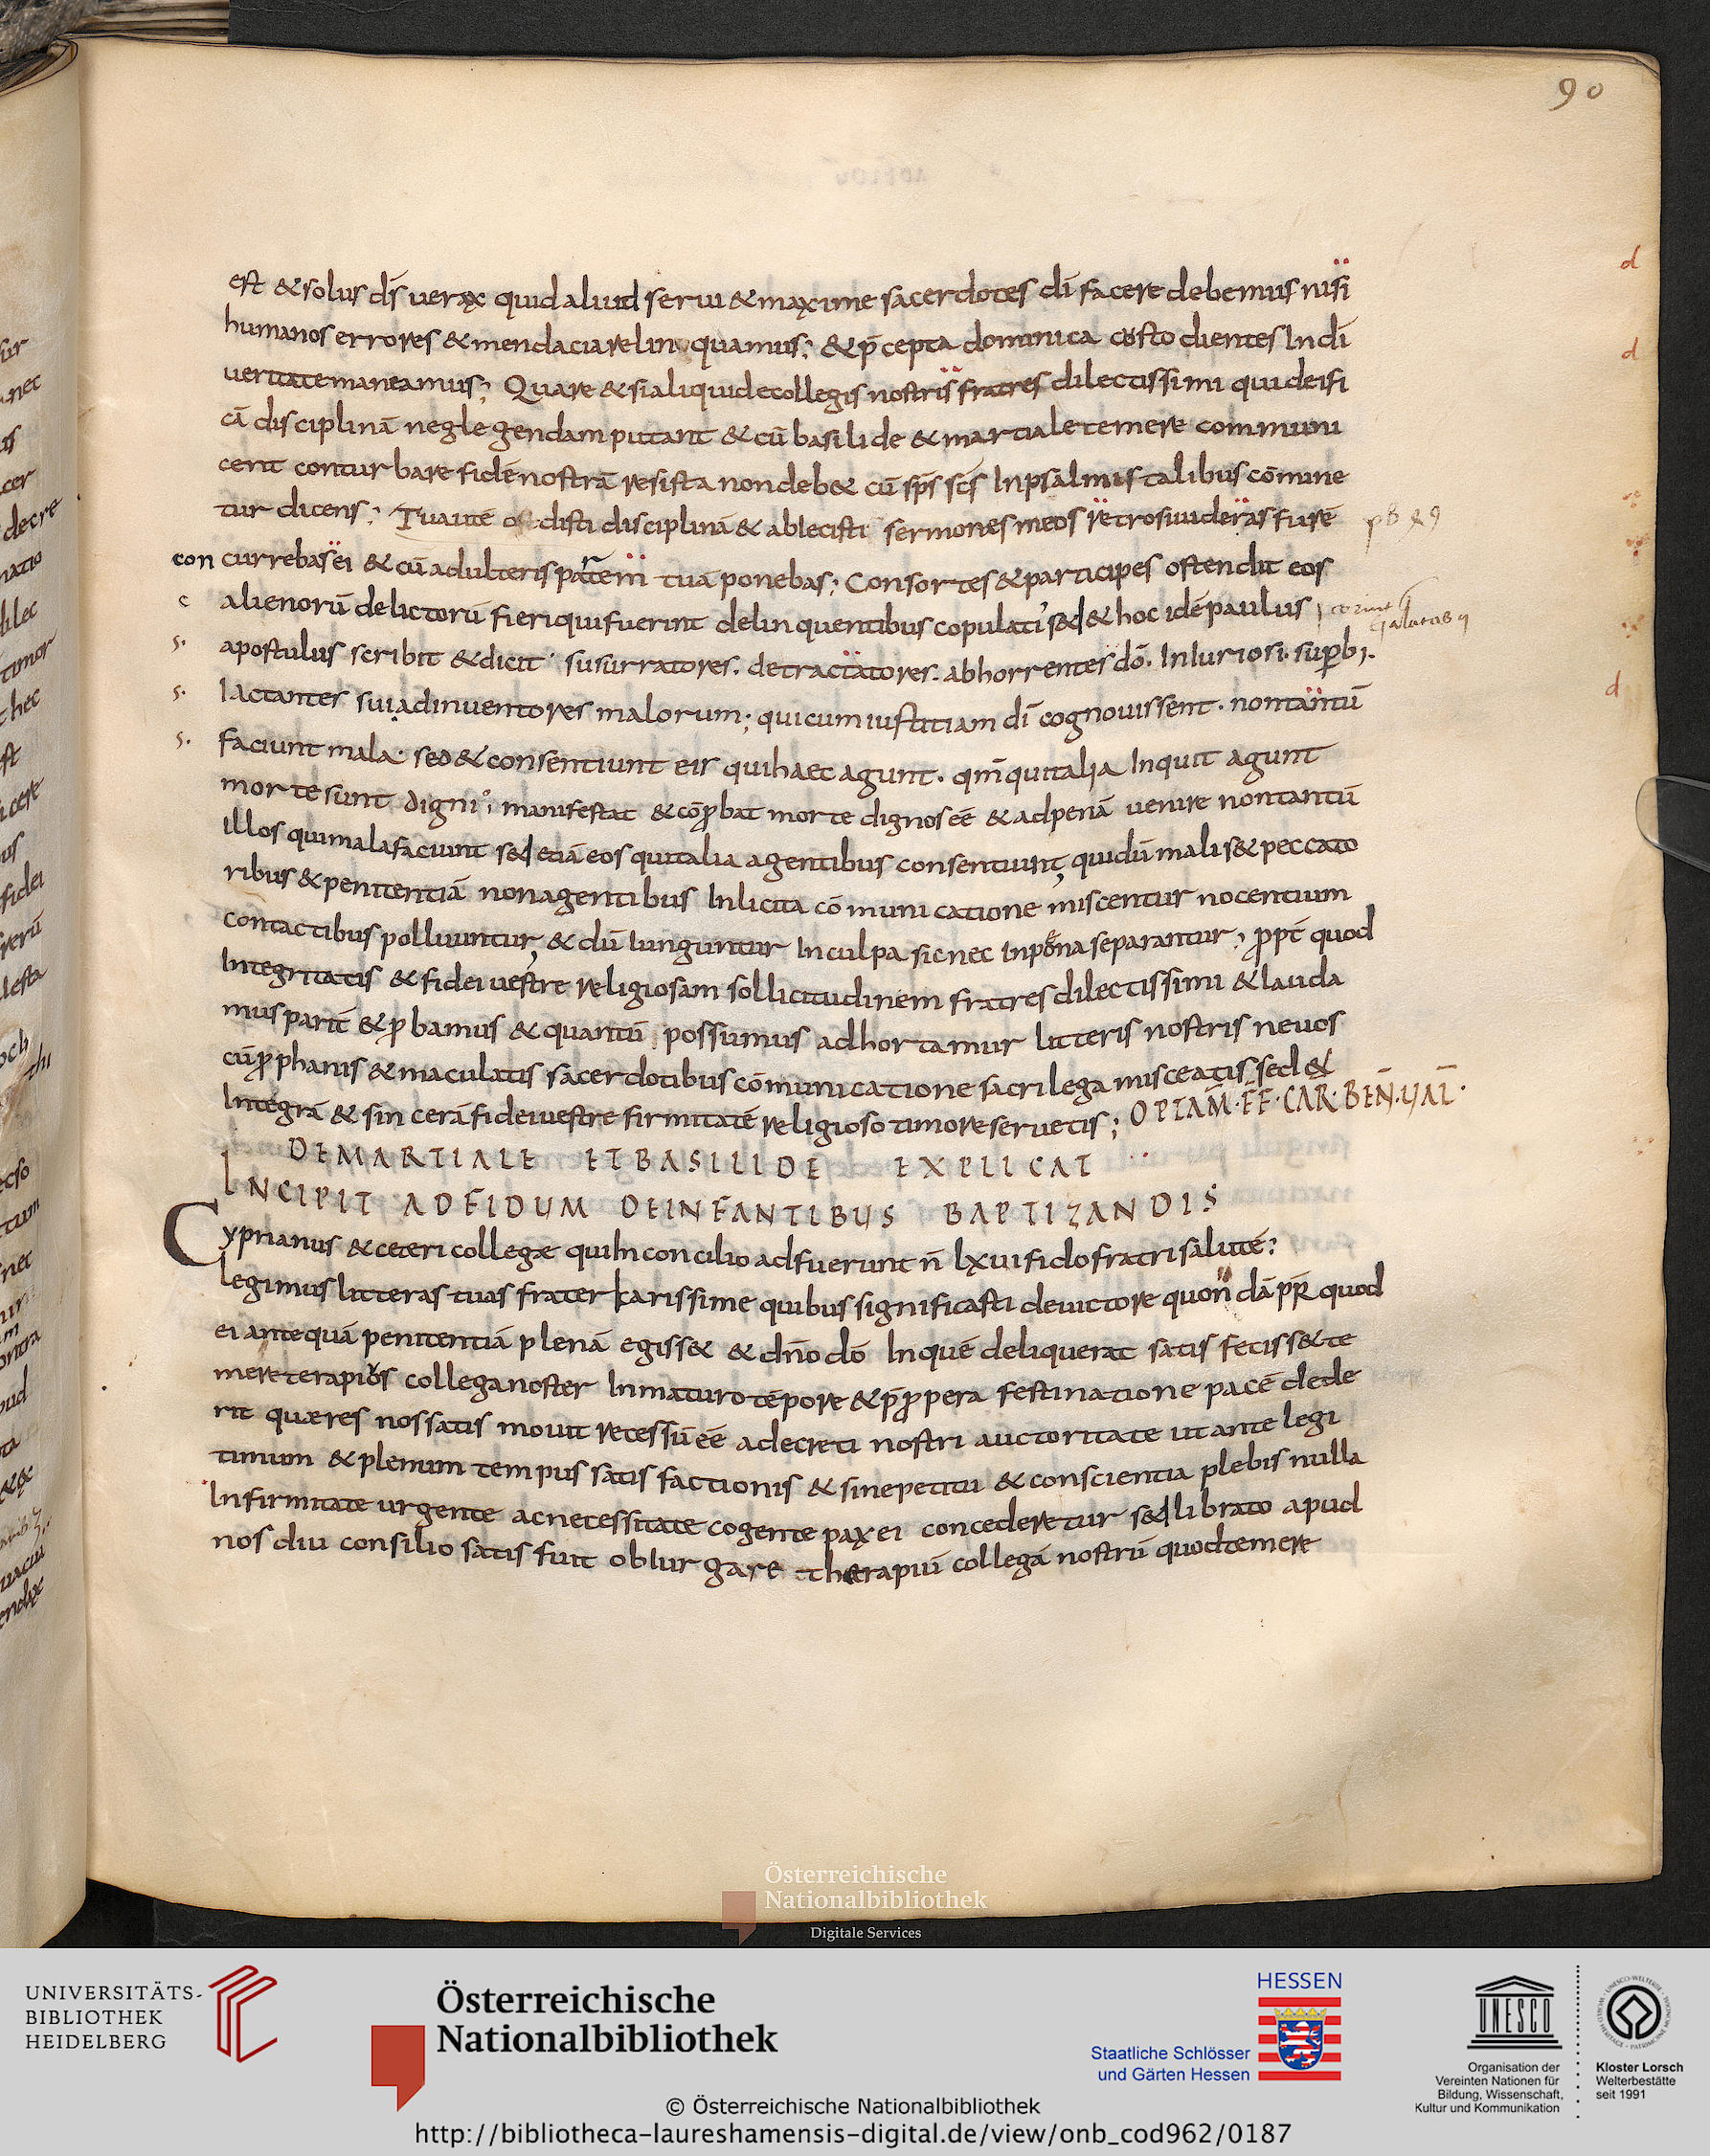 90
est & solus ds̄ uerax quid aliud serui & maxime sacerdotes dī facere debemus nisi
humanos errores & mendacia relinquamus; & p̄cepta dominica costodientes In dī
ueritate maneamus; Quare & si aliqui de collegis nostris fratres dilectissimi qui deifi
cā disciplinā neglegendam putant & cū basilide & martiale temere communi
cent conturbare fidē nostrā resista non deb& cū sp̄s sc̄s In psalmis talibus cōmine
tur dicens; Tu autē odisti disciplinā & abiecisti sermones meos retro si uideras furē
con currebas ei & cū adulteris partem tuā ponebas; Consortes & participes ostendit eos
c alienorū delictorū fieri qui fuerint delinquentibus copulati sed & hoc idē paulus
s. apostulus scribit & dicit susurratores. detractatores. abhorrentes dō. Iniuriosi. superbi.
s. Iactantes sui adinuentores malorum; qui cum iustitiam dī cognouissent. non tantū
s. faciunt mala. sed & consentiunt eis qui haec agunt. qm̄ qui talia Inquit agunt
morte sunt digni; manifestat & cōp̱bat morte dignos eē & ad penā uenire non tantū
Illos qui mala faciunt sed etiā eos qui talia agentibus consentiunt, qui dū malis & peccato
ribus & penitentiā non agentibus Inlicita cōmunicatione miscentur nocentium
contactibus polluuntur, & dū Iunguntur In culpa sic nec In poena separantur, p̱pt̄ quod
Integritatis & fidei uestre religiosam sollicitudinem fratres dilectissimi & lauda
mus parit̄ & p̱bamus & quantū possumus adhortamur litteris nostris ne uos
cū p̱phanis & maculatis sacerdotibus cōmunicatione sacrilega misceatis sed &
Integrā & sincerā fidei uestre firmitatē religioso timore seruetis; OPTAM̄. F̄F̄. CAR̄. BEN̄. UAL̄.
DE MARTIALE ET BASILIDE EXPLICAT
INCIPIT AD FIDUM DE INFANTIBUS BAPTIZANDIS
Cyprianus & ceteri collegæ qui In concilio adfuerunt n̄ lxui fido fratri salutē;
legimus litteras tuas frater karissime quibus significasti de uictore quondā pr̄ quod
ei antequā penitentiā plenā egiss& & dn̄o dō In quē deliquerat satis feciss& te
mere terapius collega noster Inmaturo tēpore & p̄p̱pera festinatione pacē dede
rit quæ res nos satis mouit recessū eē a decreti nostri auctoritate ut ante legi
timum & plenum tempus satisfactionis & sine petitu & conscientia plebis nulla
Infirmitate urgente ac necessitate cogente pax ei concederetur sed librato apud
nos diu consilio satis fuit obiurgare therapiū collegā nostrū quod temere
Österreichische
Nationalbibliothek
Digitale Services
UNIVERSITÄTS-
BIBLIOTHEK
HEIDELBERG
Österreichische
Nationalbibliothek
HESSEN
Staatliche Schlösser
und Gärten Hessen
UNESCO
Organisation der
Vereinten Nationen für
Bildung, Wissenschaft,
Kultur und Kommunikation
Kloster Lorsch
Welterbestätte
seit 1991
© Österreichische Nationalbibliothek
http://bibliotheca-laureshamensis-digital.de/view/onb_cod962/0187